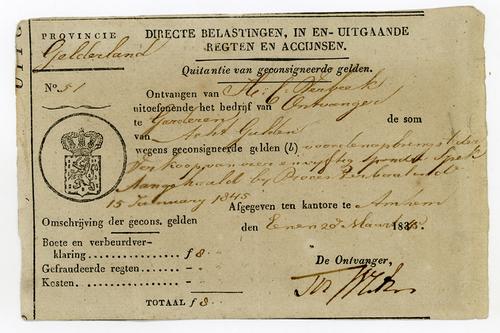 PROVINCIE
Gelderland
DIRECTE BELASTINGEN, IN EN- UITGAANDE
REGTEN EN ACCIJNSEN.
Quitantie van geconsigneerde gelden.
No. 51
Ontvangen van H. J.
uitoefenende het bedrijf van Ontvanger
te Garderen de som
van Acht Gulden
wegens geconsigneerde gelden (b)
Verkoop van vier en vyftig ponden Spek
Aangehaald by Proces Verbaal van de
15 January 1845
Afgegeven ten kantore te Arnhem
den Eenen 20 Maart 1845.
Omschrijving der gecons. gelden
Boete en verbeurdver-
klaring ............... f 8 -
Gefraudeerde regten ..... - -
Kosten ............... - -
TOTAAL f 8 -
De Ontvanger,